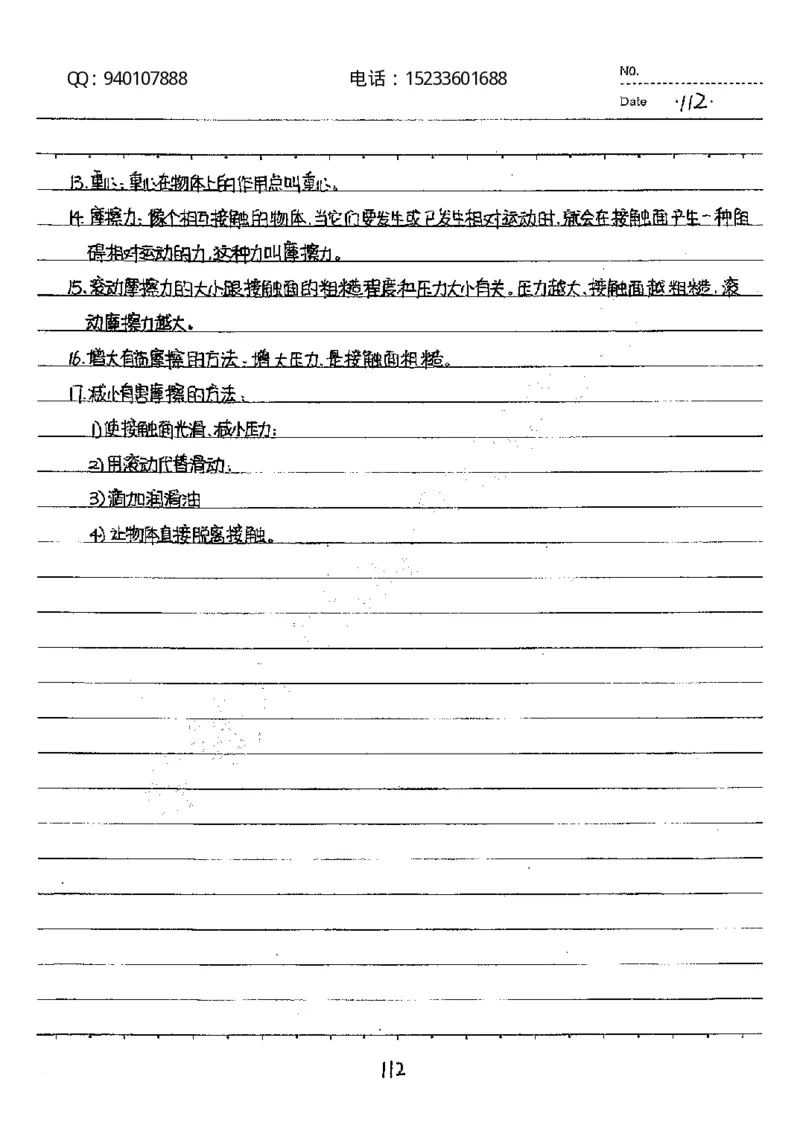 QQ：940107888 电话：15233601688 NO.
Date ·112·
13.重心：重心在物体上的作用点叫重心。
14.摩擦力：像个相互接触的物体,当它们要发生或已发生相对运动时,就会在接触面产生一种阻
碍相对运动的力,这种力叫摩擦力。
15.滚动摩擦力的大小跟接触面的粗糙程度和压力大小有关。压力越大、接触面越粗糙,滚
动摩擦力越大。
16.增大有摩擦的方法：增大压力,是接触面粗糙。
17.减小有害摩擦的方法：
1)使接触面光滑、减小压力；
2)用滚动代替滑动；
3)滴加润滑油
4)让物体直接脱离接触。
112